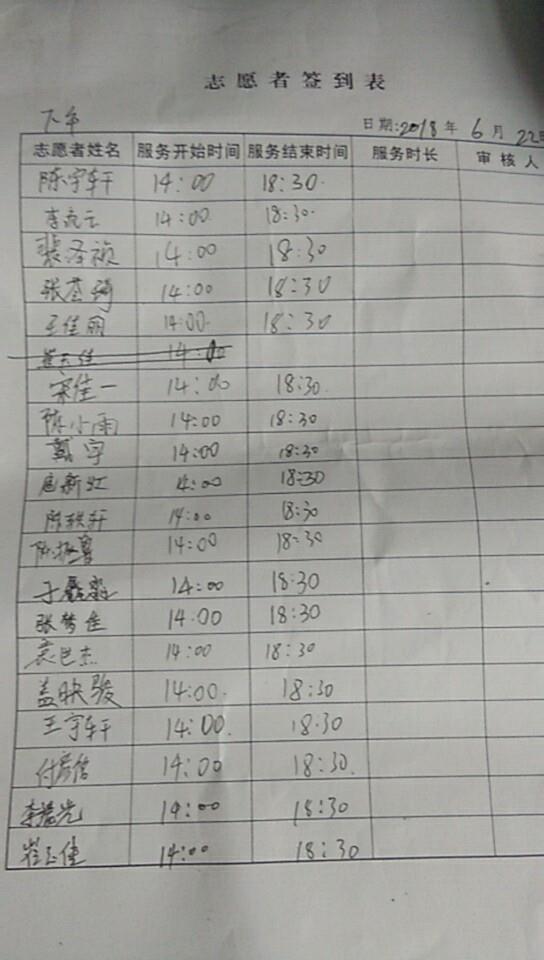 志愿者签到表
下午
日期:2018年6月22日
志愿者姓名 服务开始时间 服务结束时间 服务时长 审核人
陈宇轩 14:00 18:30
14:00 18:30
裴泽祯 14:00 18:30
张荟琦 14:00 18:30
王佳丽 14:00 18:30
14:00
宋佳一 14:00 18:30
陈小雨 14:00 18:30
戴宇 14:00 18:30
扈新红 14:00 18:30
14:00 18:30
14:00 18:30
14:00 18:30
张梦佳 14:00 18:30
14:00 18:30
盖映骏 14:00 18:30
王宇轩 14:00 18:30
14:00 18:30
14:00 18:30
崔玉佳 14:00 18:30